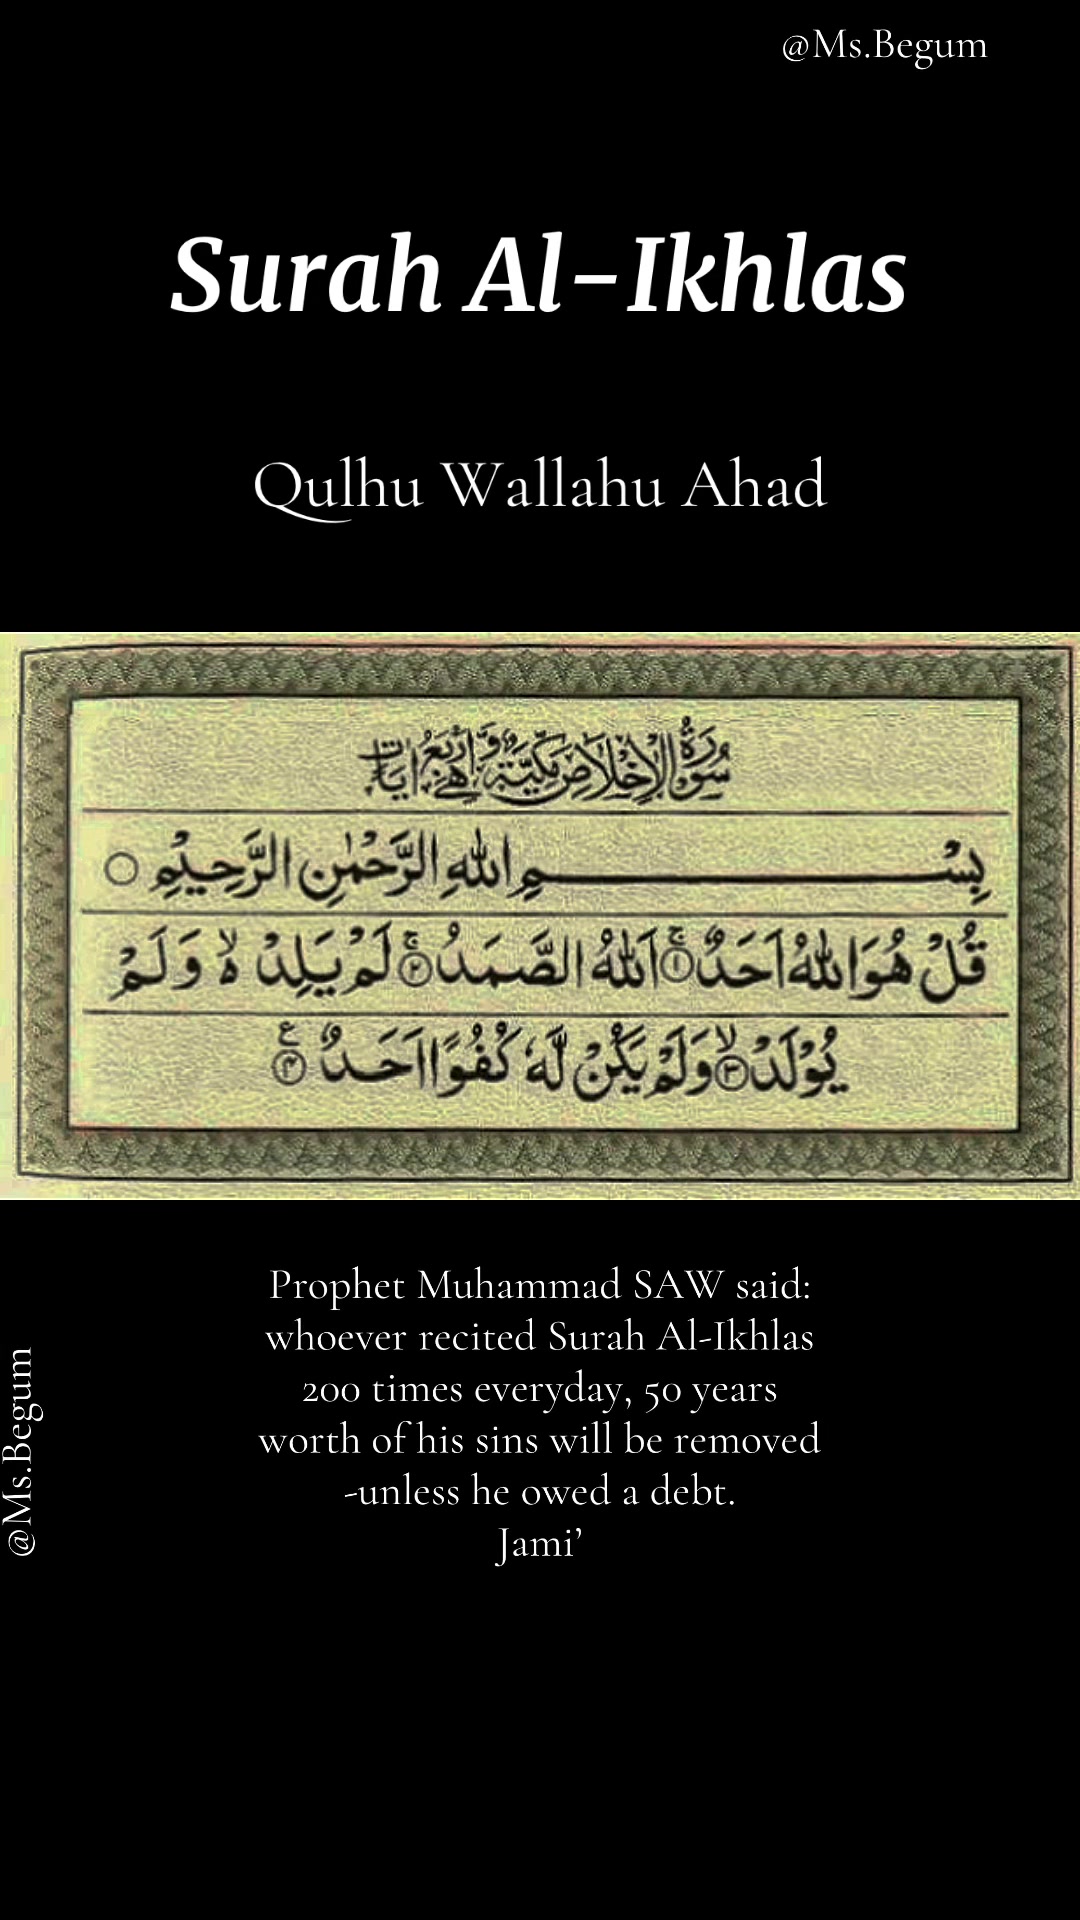 @Ms.Begum
Surah Al-Ikhlas
Qulhu Wallahu Ahad
سُوْرَةُ الْاِخْلَاصِ مَكِّيَّةٌ وَّهِيَ اَرْبَعُ اٰيَاتٍ
بِسْمِ اللهِ الرَّحْمٰنِ الرَّحِيْمِ ○
قُلْ هُوَ اللهُ اَحَدٌ ۚ ① اَللهُ الصَّمَدُ ۚ ② لَمْ يَلِدْ ۙ وَلَمْ
يُوْلَدْ ۙ ③ وَلَمْ يَكُنْ لَّهٗ كُفُوًا اَحَدٌ ۧ ④
Prophet Muhammad SAW said:
whoever recited Surah Al-Ikhlas
200 times everyday, 50 years
worth of his sins will be removed
-unless he owed a debt.
Jami’
@Ms.Begum